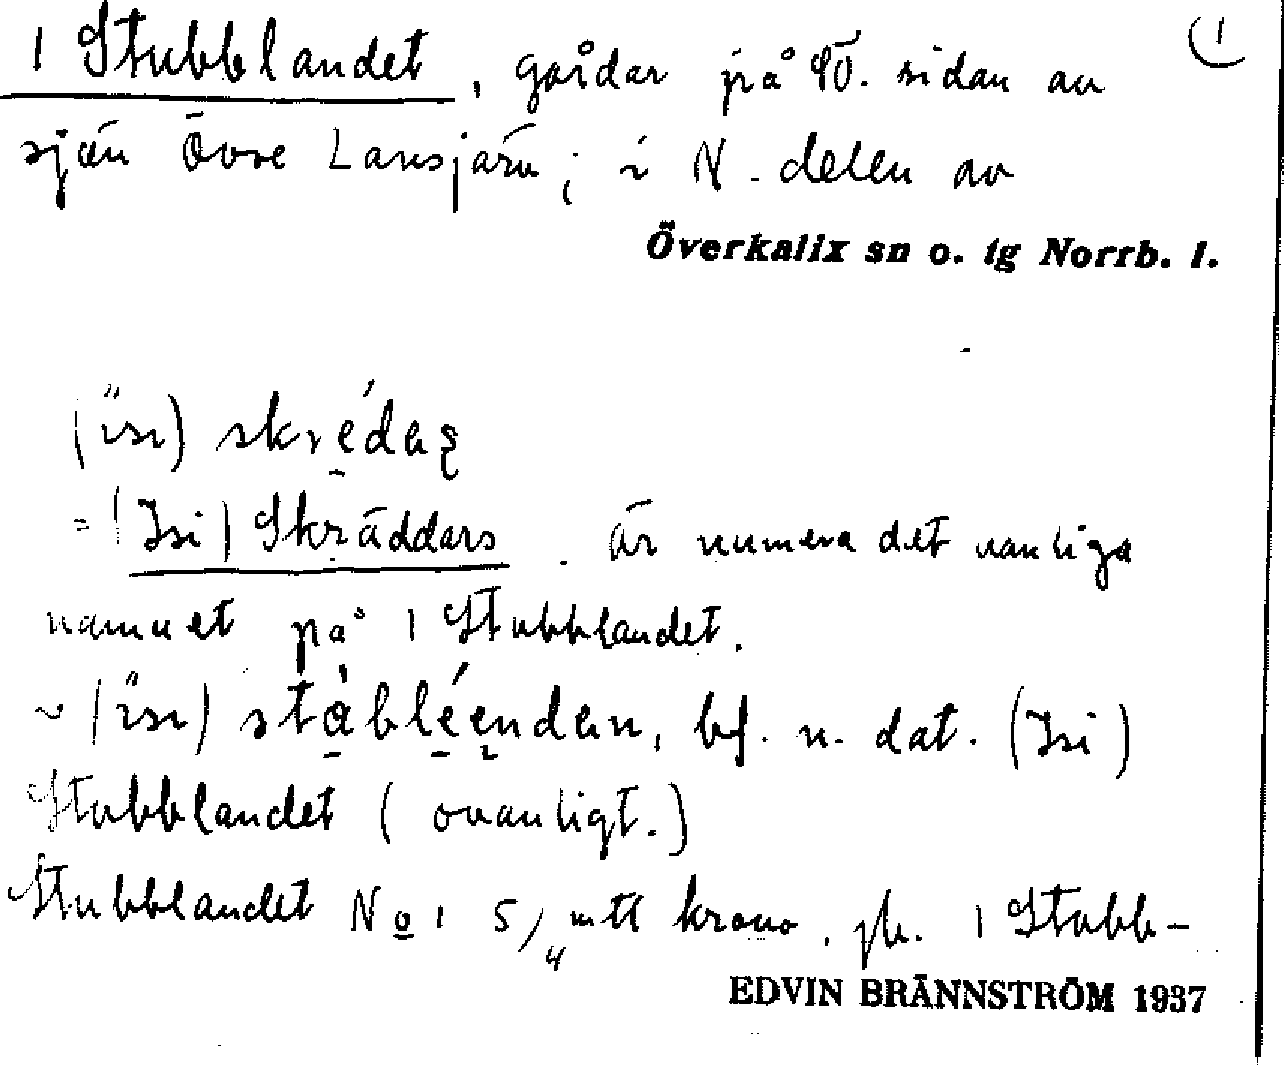 1 Stubblandet, gårdar på SÖ. sidan av (1
sjön Övre Lansjärv; i N. delen av
Överkalix sn o. tg Norrb. l.
skrédaʂ
= (Isi) Skräddars. är numera det vanliga
namnet på 1 Stubblandet.
bf. n. dat. (Isi)
Stubblandet (ovanligt.)
Stubblandet No 1 5/4 mtl krono, jb. 1 Stubb-
EDVIN BRÄNNSTRÖM 1937